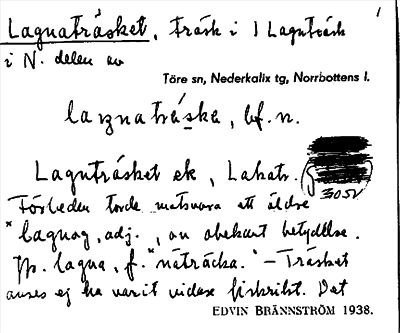 Lagnaträsket, träsk i 1 Lagnträsk
i N. delen av
Töre sn, Nederkalix tg, Norrbottens l.
lagnatráska, bf. n.
Lagnträsket ek, Lakatr.
305V
Förleden torde motsvara ett äldre
*lagnog, adj., av obekant betydelse.
Jfr. lagna, f. "nåträcka." – Träsket
anses ej ha varit vidare fiskrikt. Det
EDVIN BRÄNNSTRÖM 1938.